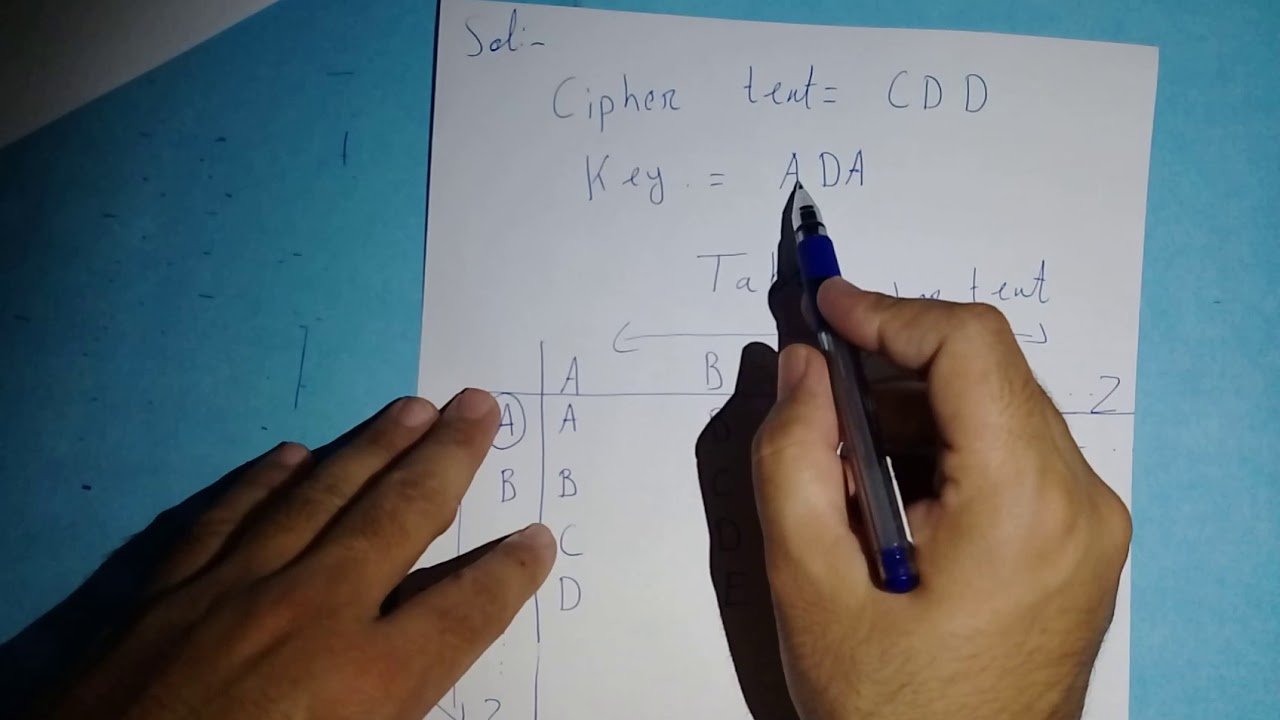 Sol:-
Cipher tent= CDD
Key = ADA
tent
A B ...Z
A A
B B C
C D
D E
Z